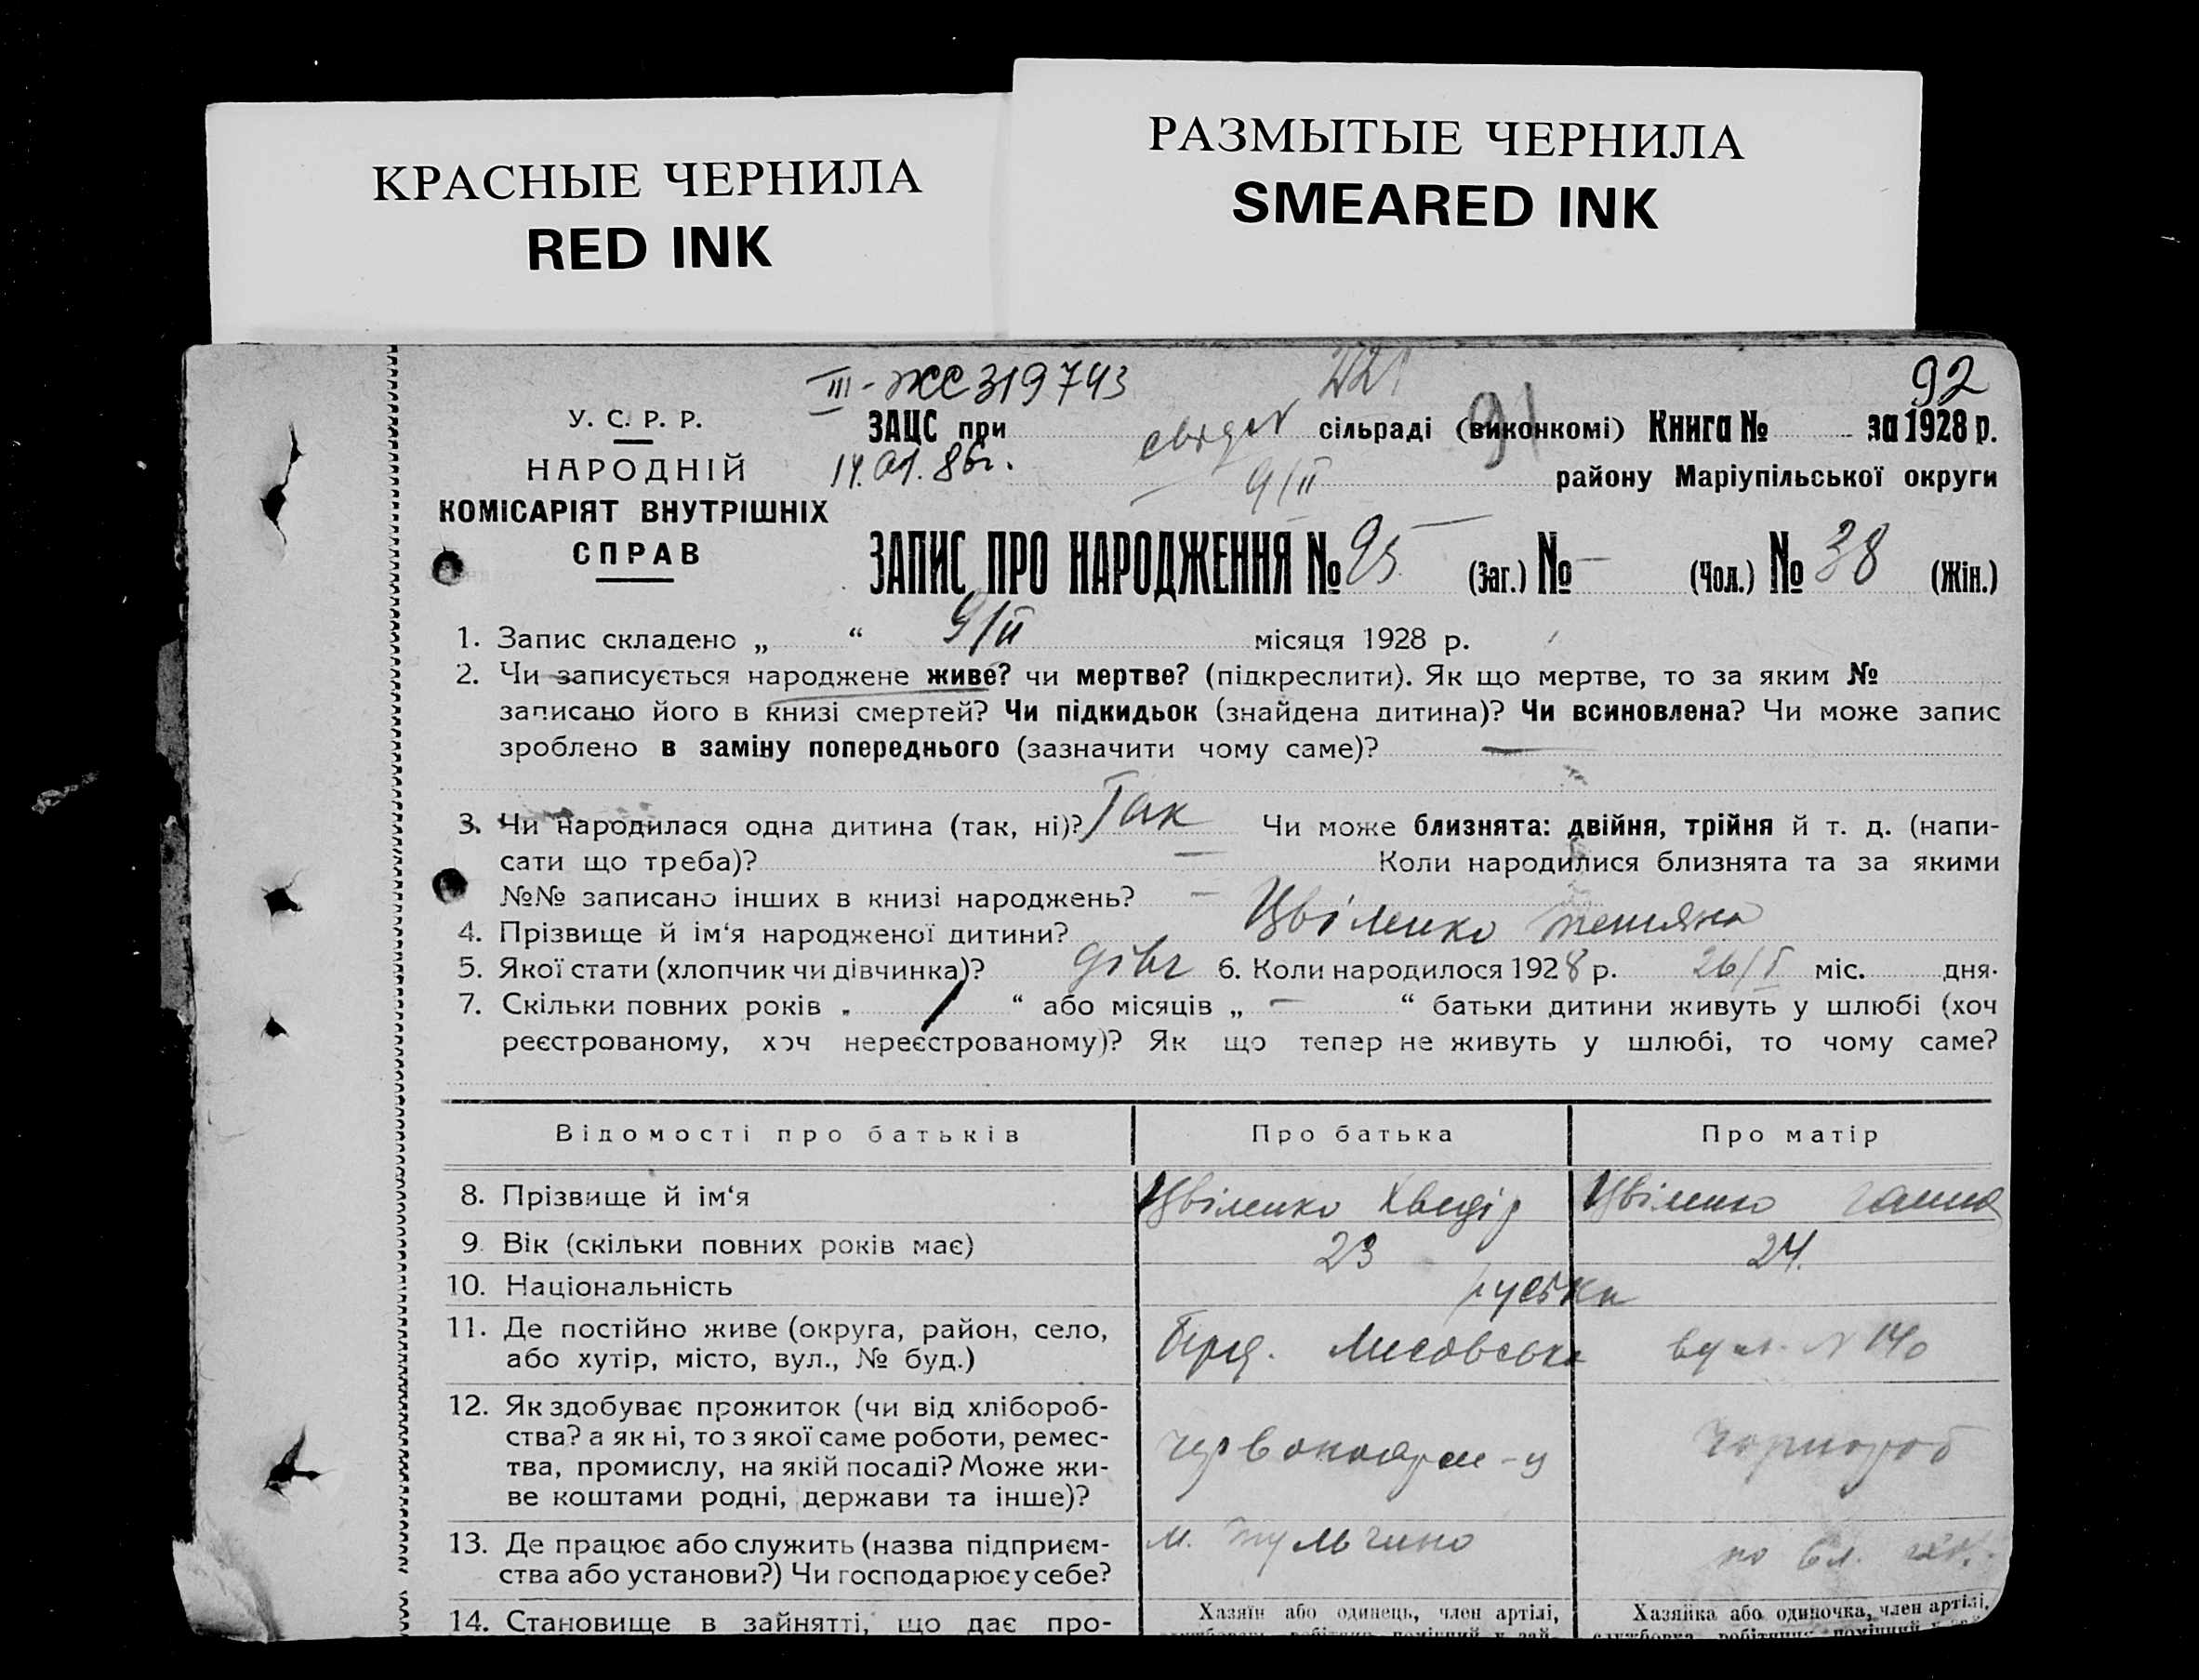 КРАСНЫЕ ЧЕРНИЛА
RED INK
РАЗМЫТЫЕ ЧЕРНИЛА
SMEARED INK
III-ЖС319743
92
У. С. Р. Р.
НАРОДНІЙ
КОМІСАРІЯТ ВНУТРІШНІХ
СПРАВ
91
ЗАЦС при сільраді (виконкомі) Книга № за 1928 р.
14.01.86г. 9/II району Маріупільської округи
ЗАПИС ПРО НАРОДЖЕННЯ № 95 (Заг.) № – (Чол.) № 38 (Жін.)
1. Запис складено „ “ 9/II місяця 1928 р.
2. Чи записується народжене живе? чи мертве? (підкреслити). Як що мертве, то за яким №
записано його в книзі смертей? Чи підкидьок (знайдена дитина)? Чи всиновлена? Чи може запис
зроблено в заміну попереднього (зазначити чому саме)? —
3. Чи народилася одна дитина (так, ні)? Так Чи може близнята: двійня, трійня й т. д. (напи-
сати що треба)? — Коли народилися близнята та за якими
№№ записано інших в книзі народжень? –
4. Прізвище й ім‘я народженої дитини? Цвіленко Тетяна
5. Якої стати (хлопчик чи дівчинка)? дівч 6. Коли народилось 1928 р. 26/I міс. дня.
7. Скільки повних років „ 1 “ або місяців „ – “ батьки дитини живуть у шлюбі (хоч
реєстрованому, хоч нереєстрованому)? Як що тепер не живуть у шлюбі, то чому саме?
Відомості про батьків Про батька Про матір
8. Прізвище й ім‘я Цвіленко Хведір Цвіленко Ганна
9. Вік (скільки повних років має) 23 24.
10. Національність руські
11. Де постійно живе (округа, район, село, Лисовська вул. N 140
або хутір, місто, вул., № буд.)
12. Як здобуває прожиток (чи від хлібороб-
ства? а як ні, то з якої саме роботи, ремес- червоноарм-ц чорнороб
тва, промислу, на якій посаді? Може жи-
ве коштами родні, держави та інше)?
13. Де працює або служить (назва підприєм- м. Тульчино
ства або установи?) Чи господарює у себе?
14. Становище в зайнятті, що дає про- Хазяїн або одинець, член артілі, Хазяйка або одиночка, член артілі,